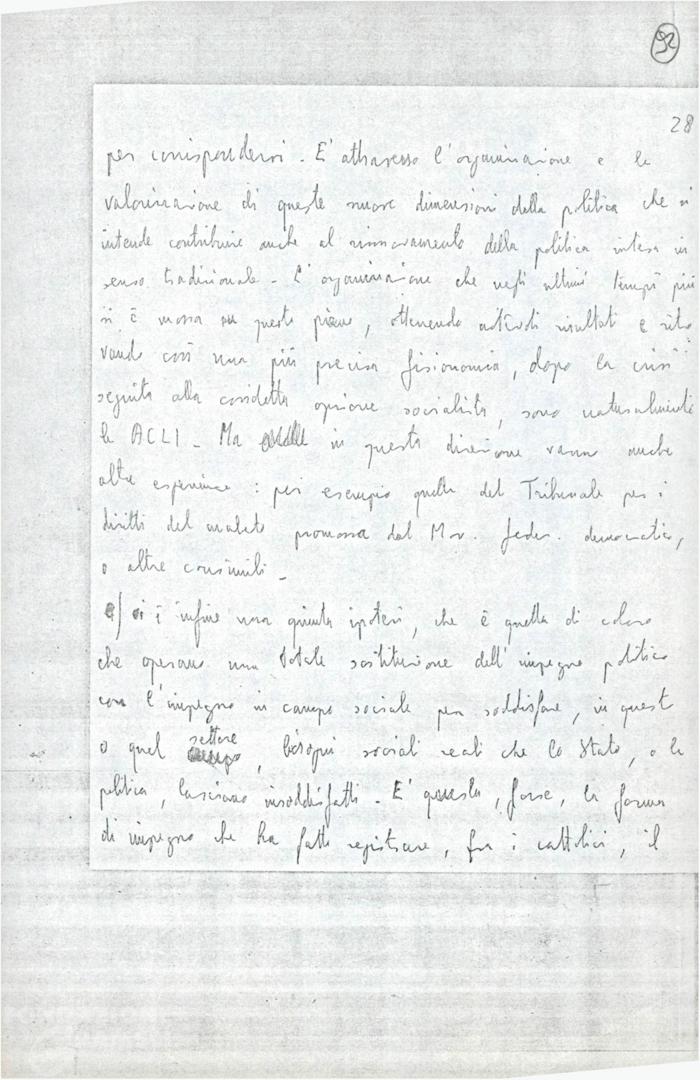 92
28
per corrispondervi. E' attraverso l'organizzazione e la
valorizzazione di queste nuove dimensioni della politica che si
intende contribuire anche al rinnovamento della politica intesa in
senso tradizionale. L'organizzazione che negli ultimi tempi più
si è mossa su questo piano, ottenendo notevoli risultati e ritro
vando così una più precisa fisionomia, dopo la crisi
seguita alla cosidetta opzione socialista, sono naturalmente
le ACLI. Ma in questa direzione vanno anche
altre esperienze: per esempio quella del Tribunale per i
diritti del malato promossa dal Mov. feder. democratico,
o altre consimili.
e) vi è infine una quinta ipotesi, che è quella di coloro
che operano una totale sostituzione dell'impegno politico
con l'impegno in campo sociale per soddisfare, in questo
o quel settore, bisogni sociali reali che lo Stato, o la
politica, lasciano insoddisfatti. E' questa, forse, la forma
di impegno che ha fatto registrare, fra i cattolici, il